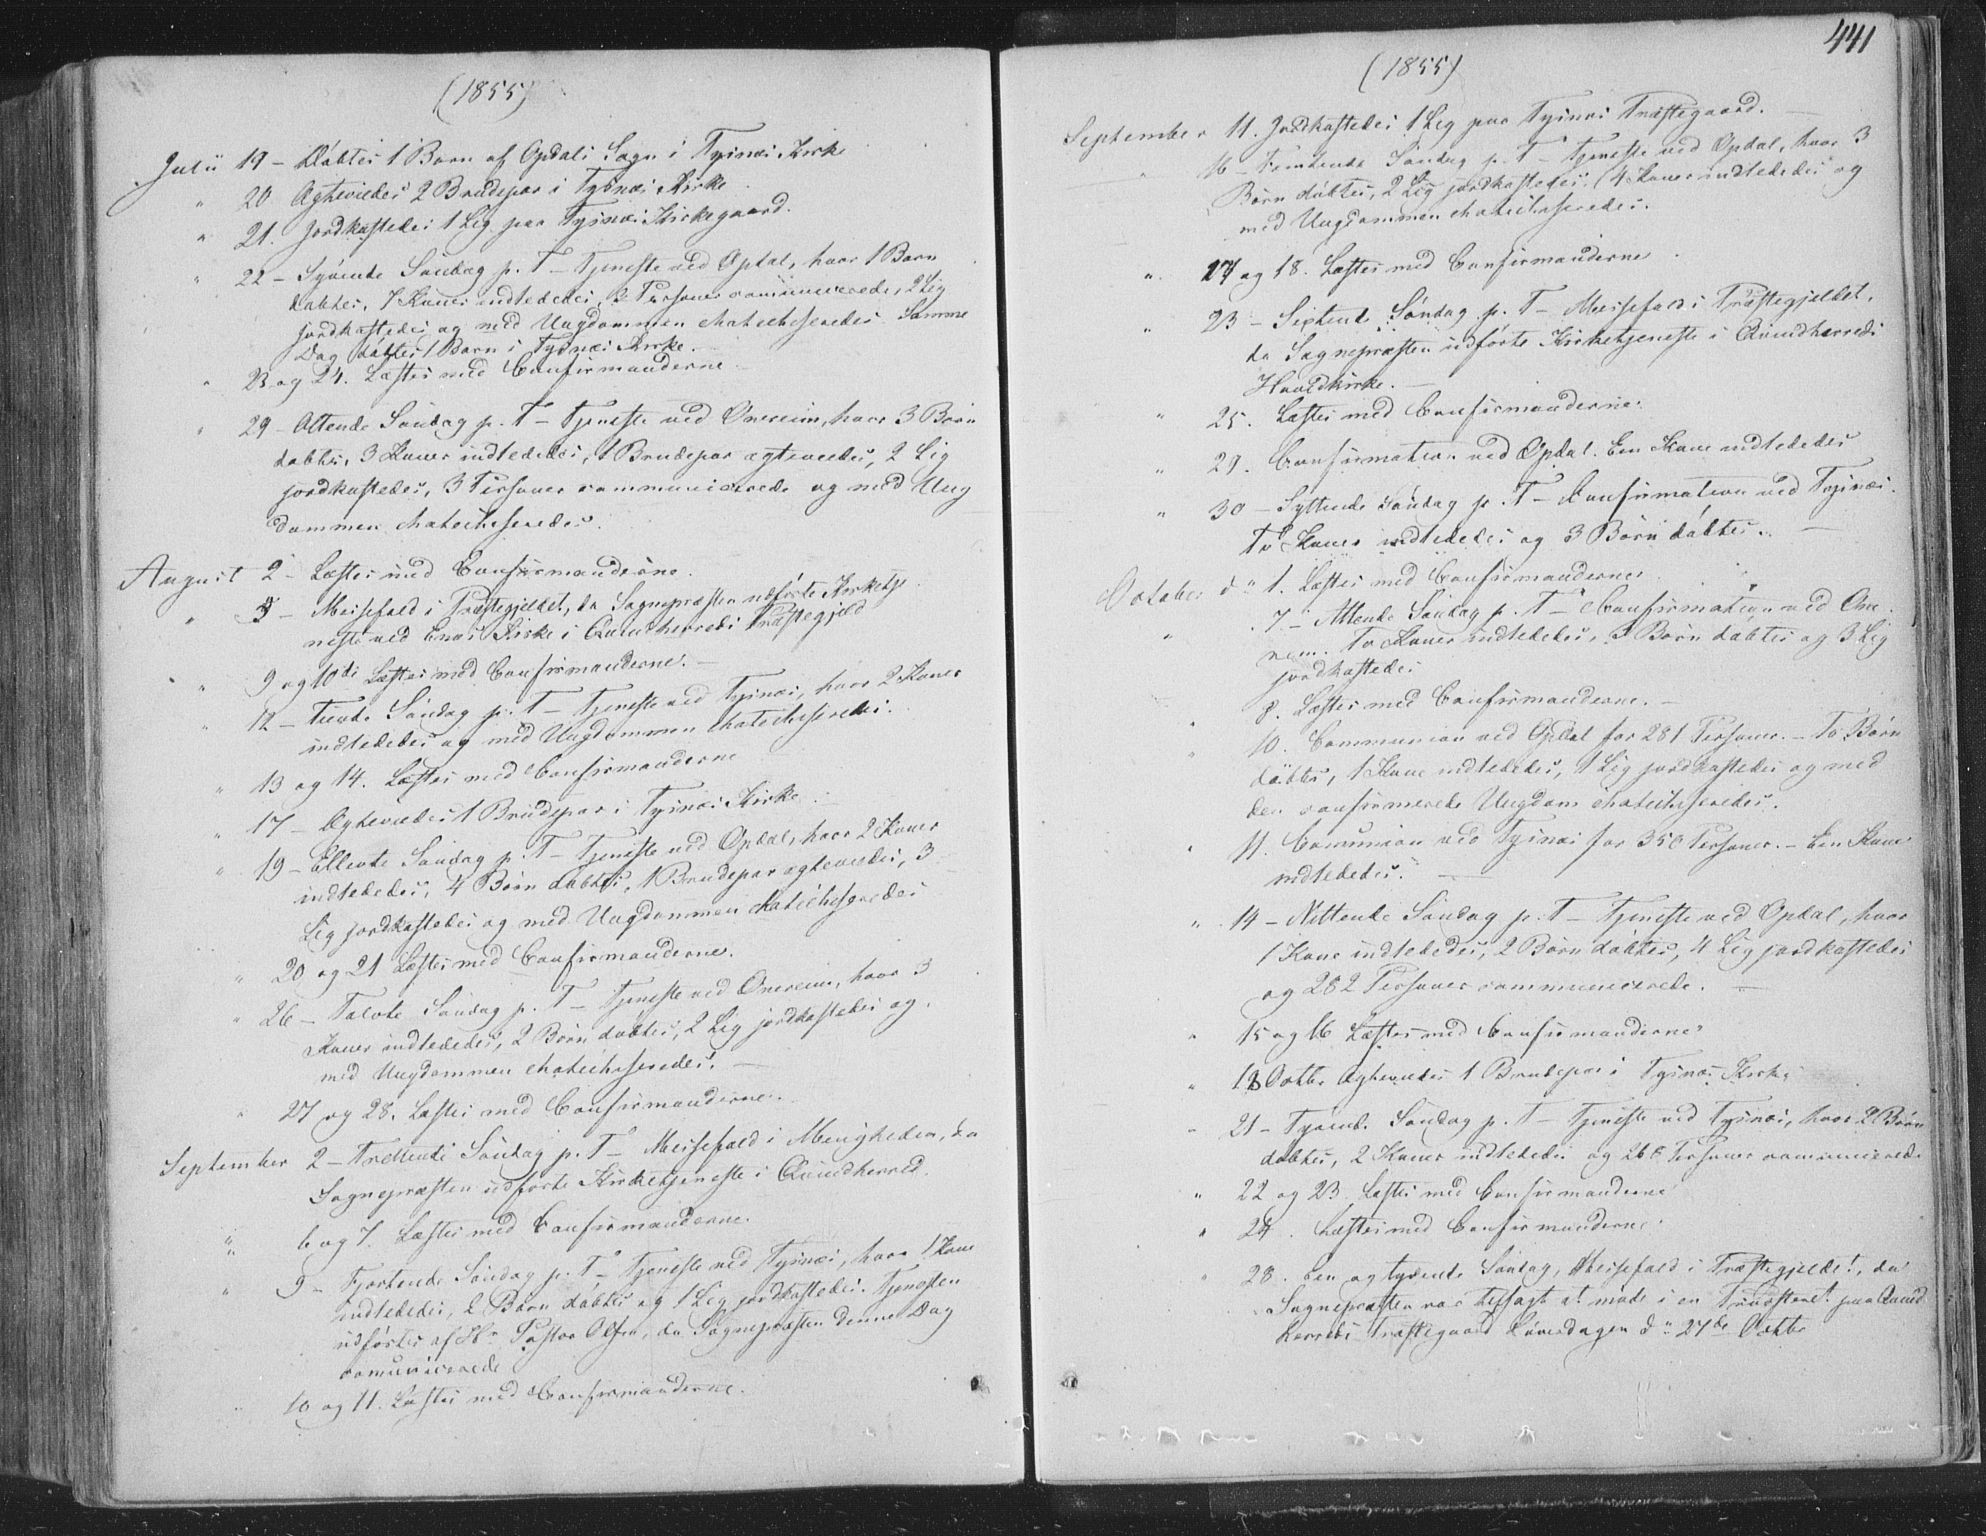 (1855)
Julii 19 – Døbtes 1 Barn af Opdals Sogn i Tysnæs Kirke
" 20 Ægteviedes 2 Brudepar i Tysnæs Kirke
" 21. Jordkastedes 1 Lig paa Tysnæs Kirkegaard.
" 22 – Syvende Søndag p. T – Tjeneste ved Opdal, hvor 1 Barn
døbtes, 7 Koner indledede, 2 Personer communicerede, 2 Lig
jordkastedes og med Ungdommen chatechiseredes. Samme
Dag døbtes 1 Barn i Tysnæs Kirke.
" 23 og 24. Læstes med Confirmanderne
" 29 – Ottende Søndag p. T – Tjeneste ved Onereim, hvor 3 Børn
døbtes, 3 Koner indlededes, 1 Brudepar ægteviedes, 2 Lig
jordkastedes, 3 Personer communicerede og med Ung
dommen chatechiseredes.
August 2 – Læstes med Confirmanderne.
" 5 – Messefald i Præstegjeldet, da Sognepræsten udførte Kirketje
neste ved Enæs Kirke i Qvindherreds Præstegjeld
" 9 og 10de Læstes med Confirmanderne. –
" 12 – Tiende Søndag p. T – Tjeneste ved Tysnæs, hvor 2 Koner
indlededes og med Ungdommen chatechiseredes.
" 13 og 14. Læstes med Confirmanderne
" 17 – Ægteviedes 1 Brudepar i Tysnæs Kirke
" 19 – Ellevte Søndag p. T – Tjeneste ved Opdal, hvor 2 Koner
indlededes, 4 Børn døbtes, 1 Brudepar ægteviedes, 3
Lig jordkastedes og med Ungdommen chatechiseredes
" 20 og 21 Læstes med Confirmanderne.
" 26 – Tolvte Søndag p. T – Tjeneste ved Onereim, hvor 3
Koner indlededes, 2 Børn døbtes, 2 Lig jordkastedes og
med Ungdommen chatechiseredes. –
" 27 og 28. Læstes med Confirmanderne.
September 2 – Trettende Søndag p. T – Messefald i Menigheden, da
Sognepræsten udførte Kirketjeneste i Qvindherred.
" 6 og 7. Læstes med Confirmanderne.
" 9 – Fjortende Søndag p. T – Tjeneste ved Tysnæs, hvor 1 Kone
indlededes, 2 Børn døbtes og 1 Lig jordkastedes. Tjenesten
udførtes af Hr Pastor Olsen, da Sognepræsten denne Dag
comunicerede
" 10 og 11. Læstes med Confirmanderne.
441
(1855)
September 11. Jordkastedes 1 Lig paa Tysnæs Præstegaard. –
" 16 – Femtende Søndag p. T – Tjeneste ved Opdal, hvor 3
Børn døbtes, 2 Lig jordkastedes, 4 Koner indlededes og
med Ungdommen chatechiseredes.
" 17 og 18. Læstes med Confirmanderne
" 23 – Sextende Søndag p. T – Messefald i Præstegjeldet,
da Sognepræsten udførte Kirketjeneste i Qvindherreds
Hovedkirke. –
" 25. Læstes med Confirmanderne.
" 29. Confirmation ved Opdal. Een Kone indlededes
" 30 – Syttende Søndag p. T – Confirmation ved Tysnæs.
To Koner indlededes og 3 Børn døbtes. –
October dn 1. Læstes med Confirmanderne
" 7 – Attende Søndag p. T – Confirmation ved One
reim. To Koner indlededes, 3 Børn døbtes og 3 Lig
jordkastedes
" 8. Læstes med Confirmanderne. –
" 10. Communion ved Opdal for 281 Personer. – To Børn
døbtes, 1 Kone indlededes, 1 Lig jordkastedes og med
den confirmerede Ungdom chatechiseredes.
" 11. Comunion ved Tysnæs for 350 Personer. – Een Kone
indlededes. –
" 14 – Nittende Søndag p. T – Tjeneste ved Opdal, hvor
1 Kone indlededes, 2 Børn døbtes, 4 Lig jordkastedes
og 282 Personer communicerede. –
" 15 og 16 Læstes med Confirmanderne
" 18 Octbr Ægteviedes 1 Brudepar i Tysnæs Kirke
" 21 – Tyvend. Søndag p. T – Tjeneste ved Tysnæs, hvor 2 Børn
døbtes, 2 Koner indlededes og 268 Personer communicerede
" 22 og 23. Læstes med Confirmanderne
" 24. Læstes med Confirmanderne.
" 28. Een og tyvende Søndag, Messefald i Præstegjeldet, da
Sognepræsten var tilsagt at møde i en Provsteret paa Qvind
herreds Præstegaard Løverdagen dn 27de Octbr